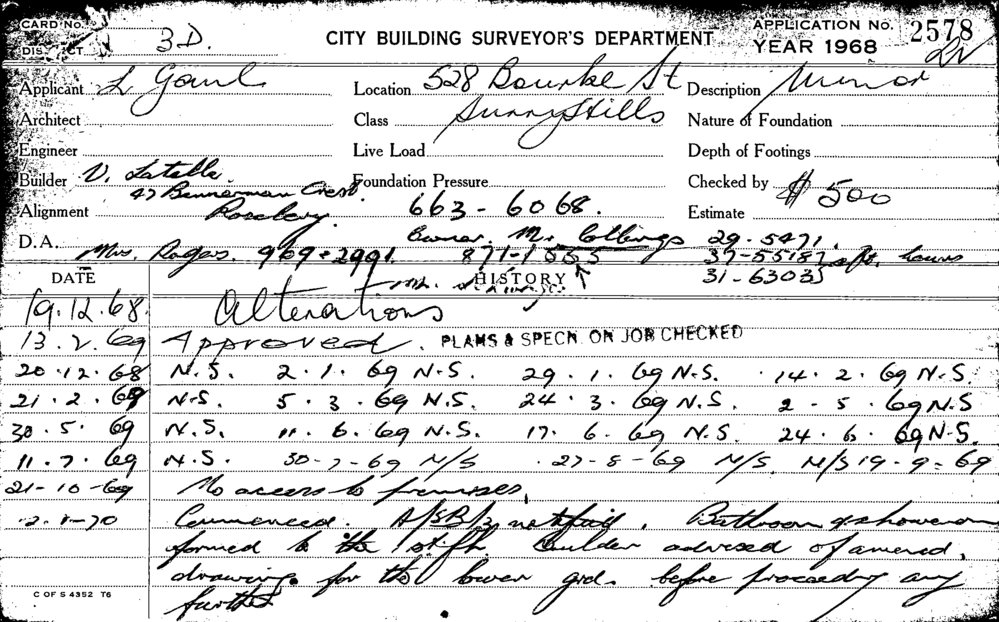 CARD No.
DISTRICT 3D.
CITY BUILDING SURVEYOR'S DEPARTMENT
APPLICATION No. 2578
YEAR 1968
Applicant L Gaul Location 528 Bourke St Description Minor
Architect Class Surry Hills Nature of Foundation
Engineer Live Load Depth of Footings
Builder V. Latella Foundation Pressure Checked by
47 Bannerman Cres. $500
Alignment Rosebery 663-6068. Estimate
D.A. Owner. Mr. 29-5471.
Mrs. Rogers. 969-2991. 871-1555 37-55187 hours
31-63035
DATE HISTORY
19.12.68. Alterations
13.2.69 Approved. PLANS & SPECN. ON JOB CHECKED
20.12.68 N.S. 2.1.69 N.S. 29.1.69 N.S. 14.2.69 N.S.
21.2.69 N.S. 5.3.69 N.S. 24.3.69 N.S. 2-5.69 N.S
30.5.69 N.S. 11.6.69 N.S. 17.6.69 N.S. 24.6.69 N.S.
11.7.69 N.S. 30-7-69 N/S 27-8-69 N/S N/S 19-9-69
21-10-69 No access to premises.
2.1-70 Commenced. Bathroom & shower
formed to the 1st flr. builder advised of amend.
drawings for the lower grd. before proceeding any
further
C OF S 4352 T6